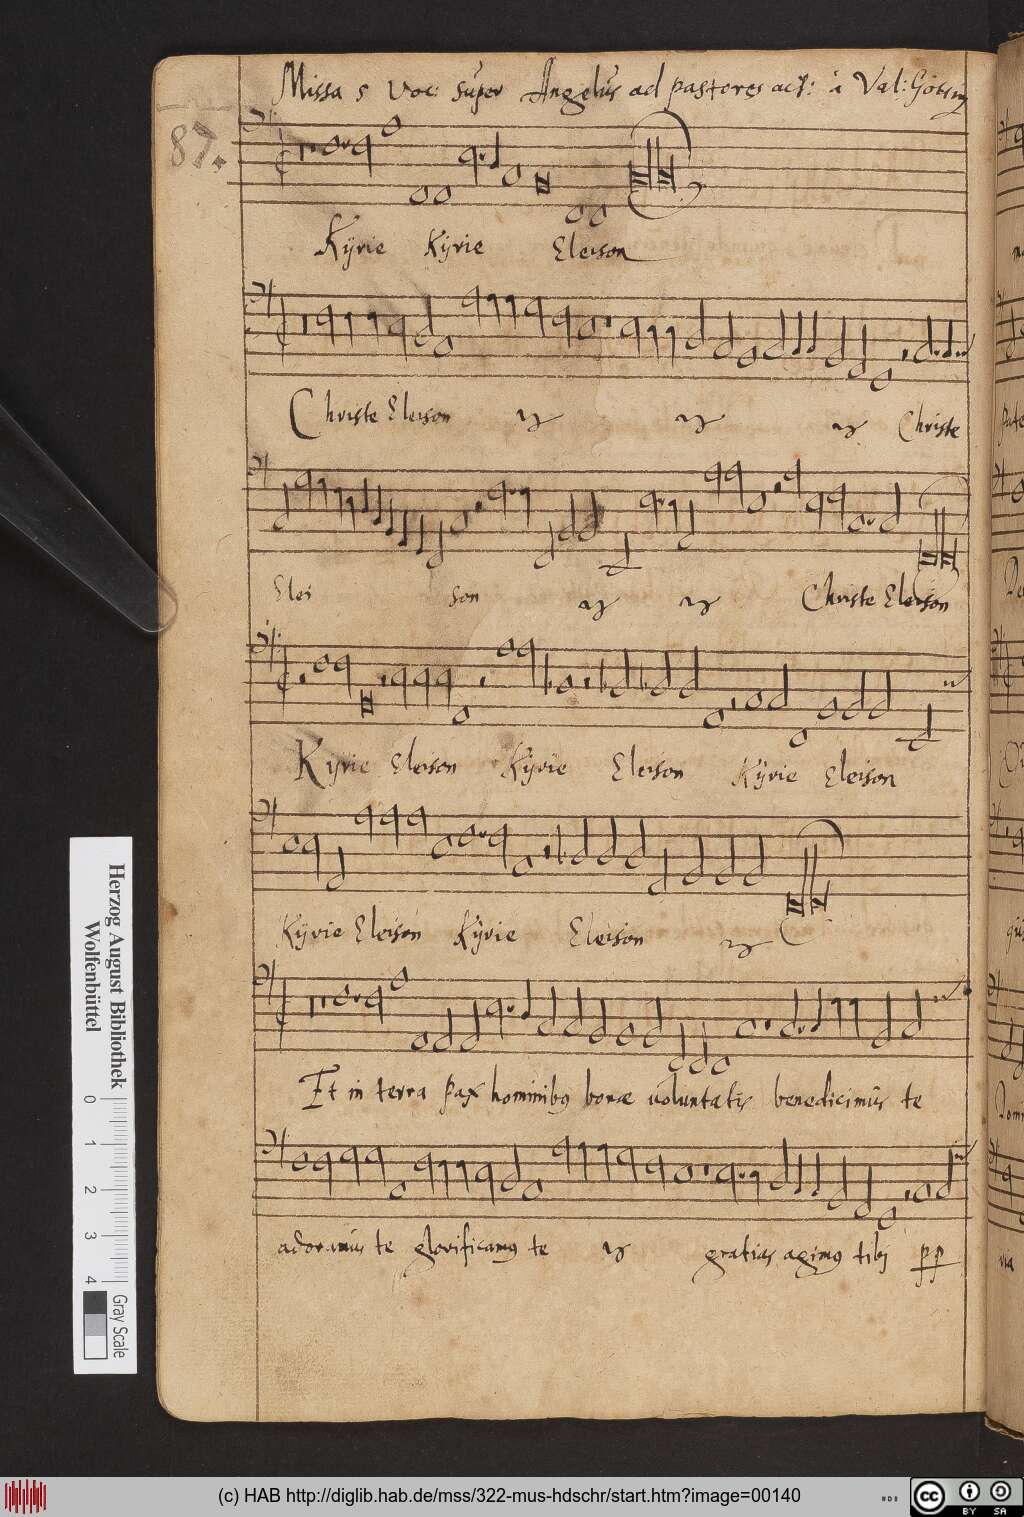 Missa 5 Voc: super Angelus ad pastores act: à Val:
87.
Kÿrie Kÿrie Eleison
Christe Eleison Christe
Elei son Christe Eleison
Kÿrie Eleison Kÿrie Eleison Kÿrie Eleison
Kÿrie Eleison Kÿrie Eleison
Et in terra pax hominibꝯ bonæ voluntatis benedicimus te
adoramus te glorificamꝯ te gratias agimꝯ tibj pp
Herzog August Bibliothek
Wolfenbüttel
0 1 2 3 4
Gray Scale
(c) HAB http://diglib.hab.de/mss/322-mus-hdschr/start.htm?image=00140
cc BY SA